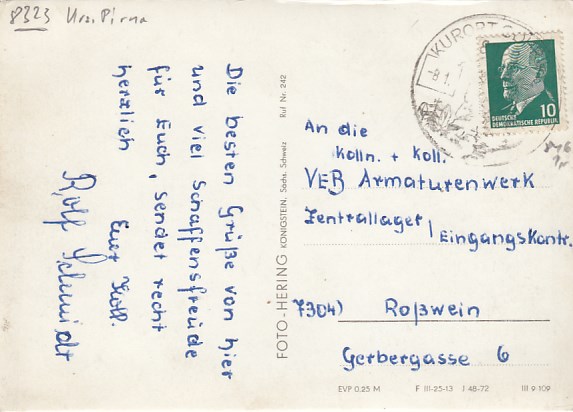 8323 Krs. Pirna
Die besten Grüße von hier
und viel Schaffensfreude
für Euch, sendet recht
herzlich
Euer Koll.
Rolf Schmidt
FOTO-HERING KÖNIGSTEIN, Sächs. Schweiz Ruf Nr. 242
KURORT
-8.1
DEUTSCHE
DEMOKRATISCHE REPUBLIK
10
An die
Kolln. + Koll.
VEB Armaturenwerk
Zentrallager / Eingangskontr.
7304) Roßwein
Gerbergasse 6
EVP 0.25 M F III-25-13 J 48-72 III 9 109